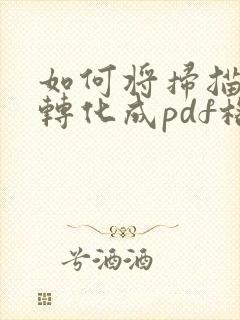 如何将掃描
轉化成pdf
号酒酒